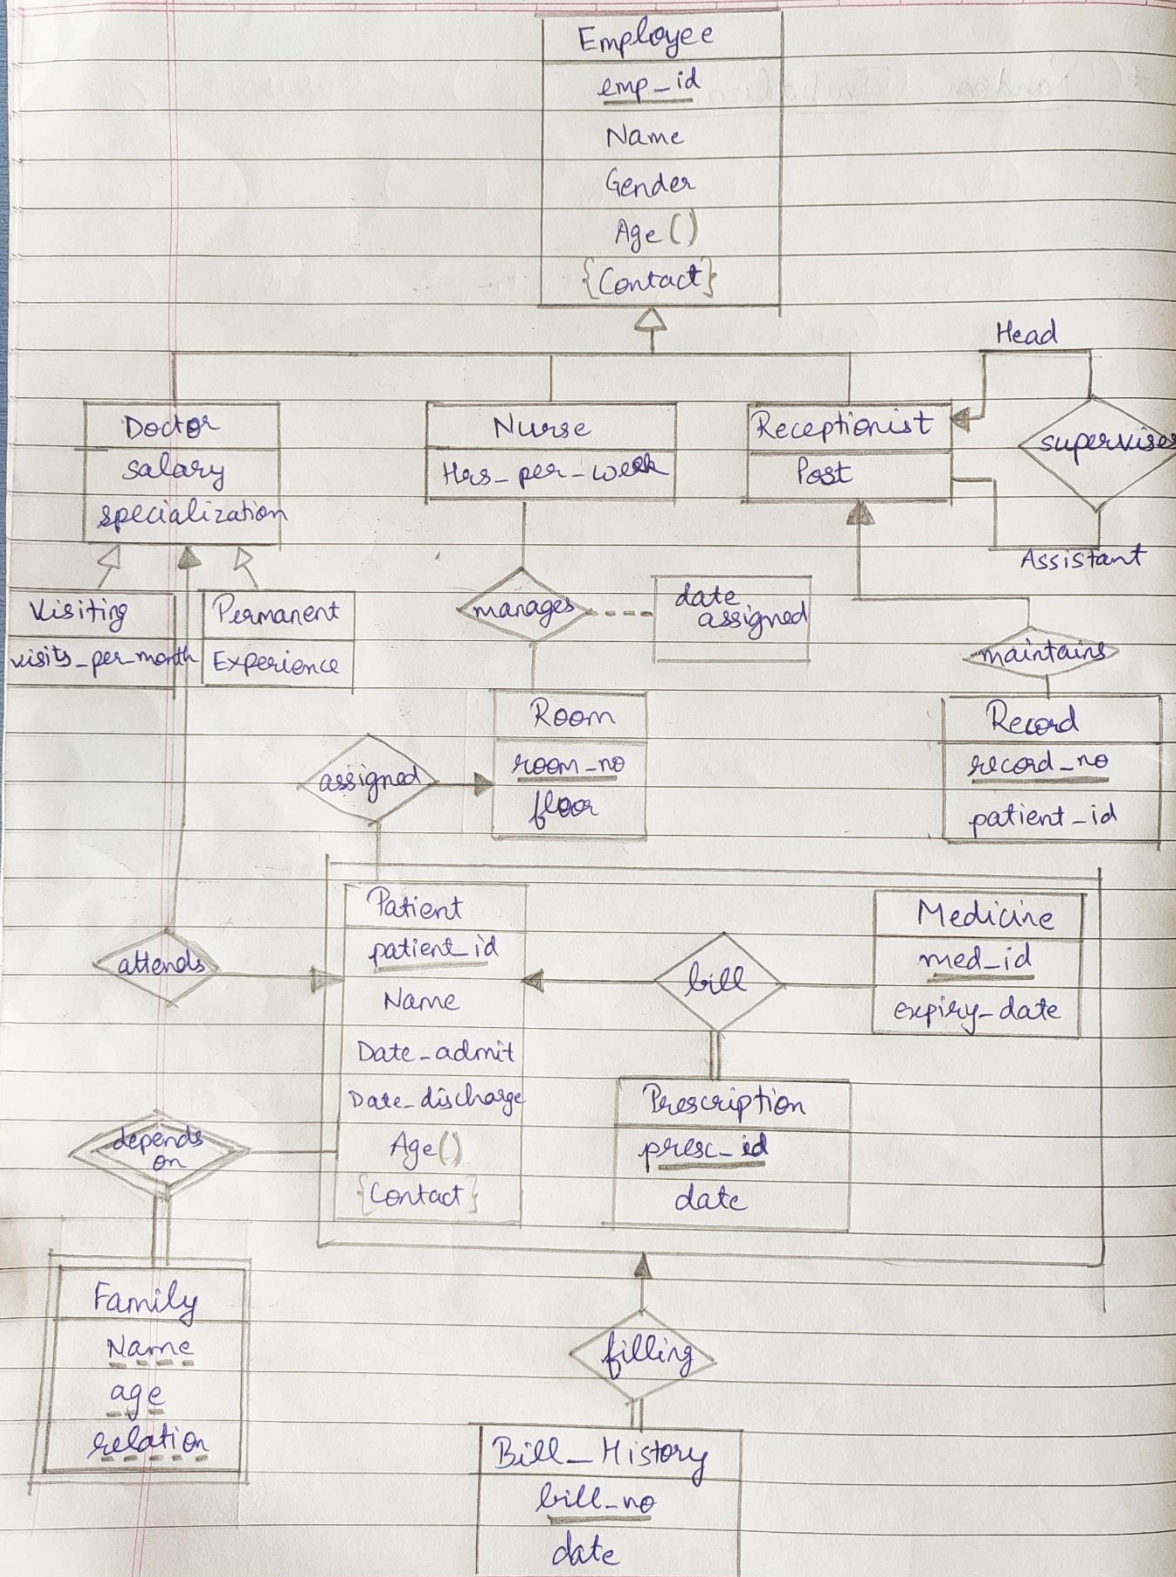 Employee
emp_id
Name
Gender
Age ()
{Contact}
Head
Doctor
salary
specialization
Nurse
Hrs_per_week
Receptionist
Post
supervises
Assistant
Visiting
visits_per_month
Permanent
Experience
manages
date
assigned
maintains
Room
room_no
floor
Record
record_no
patient_id
assigned
Patient
patient_id
Name
Date_admit
Date_discharge
Age()
{Contact}
attends
bill
Medicine
med_id
expiry_date
Prescription
presc_id
date
depends
on
Family
Name
age
relation
filling
Bill_History
bill_no
date